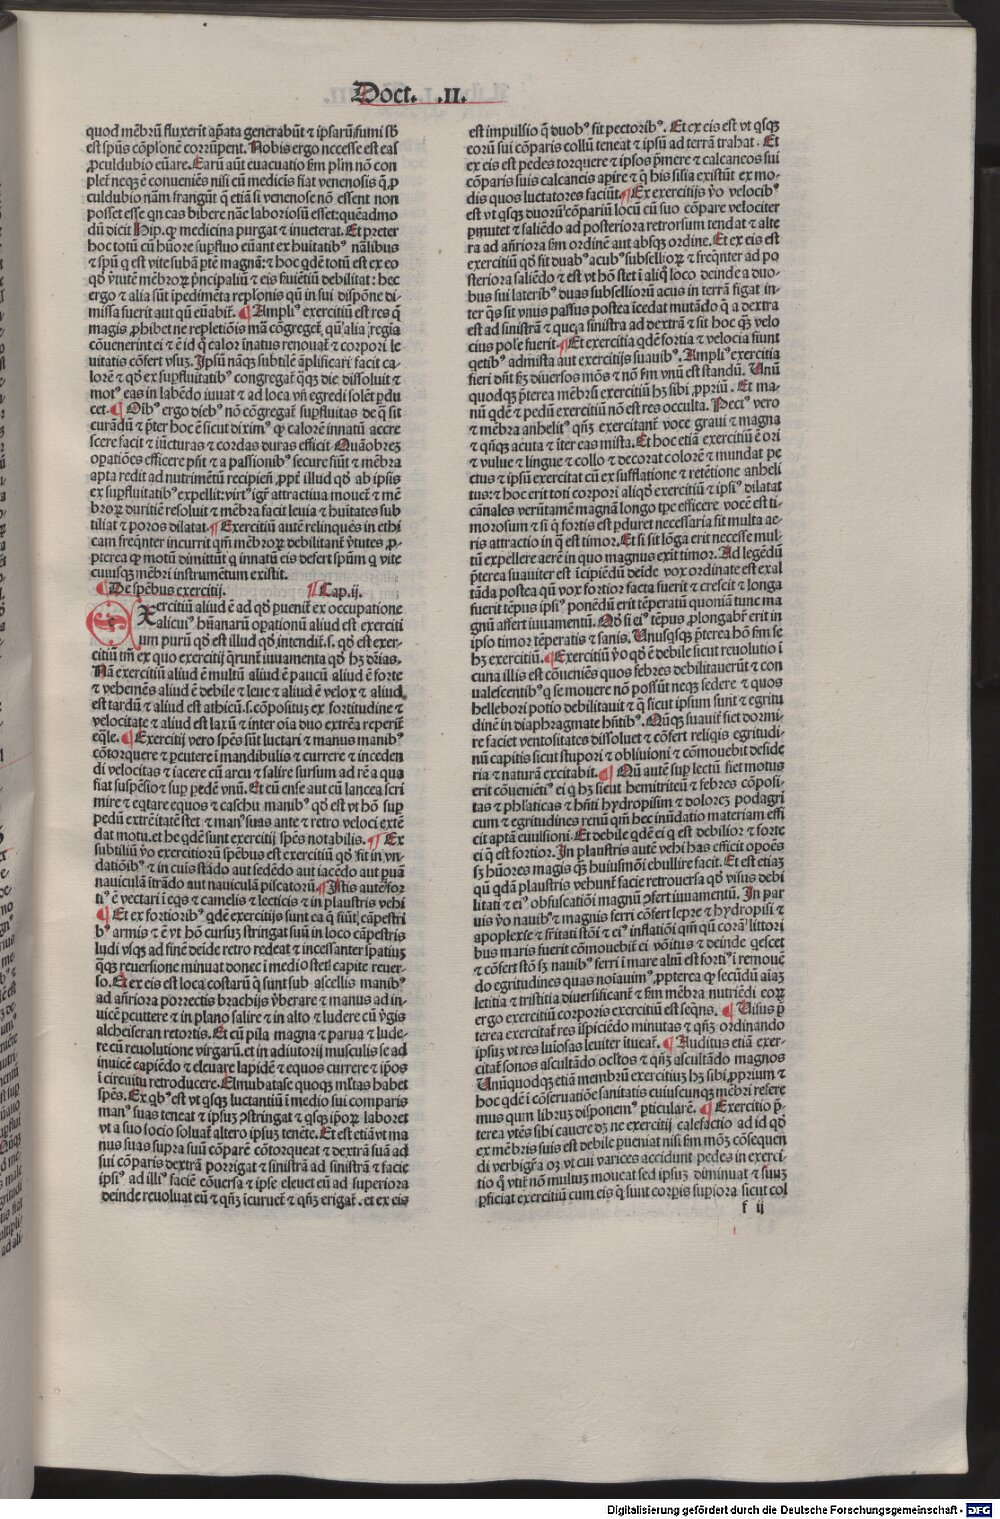 Doct. .II.
quod mēbrū fluxerit apata generabūt ⁊ ipsarū fumi sb
est spūs cōplonē corrūpent. Nobis ergo necesse est eas
proculdubio euāre. Earū aūt euacuatio
nō con
neqȝ ē conueniēs nisi cū medicis fiat venenosis
culdubio nām frangūt q̄ etiā si venenose nō essent non
posset esse qn eas bibere nāe laboriosū esset: quēadmo
dū dicit Hip. qȝ medicina purgat ⁊ inueterat. Et preter
hoc totū cū hūore supfluo euāt ex huitatibꝰ nālibus
⁊ spū q est vite subā ptē magnā: ⁊ hoc qdē totū est ex eo
debilitat: hec
ergo ⁊ alia sūt ipedimēta replonis qū in sui dispōne di-
missa fuerit aut qū euabit. ¶ Ampliꝰ exercitiū est res q̄
magis prohibet ne repletiōis mā cōgreget, qn alia regia
cōuenerint ei ⁊ ē id q̄ calor īnatus renouat ⁊ corpori le
uitatis cōfert vsuȝ. Ipsū nāqȝ subtilē aplificari facit ca-
lorē ⁊ qd ex supfluitatibꝰ congregat qqȝ die dissoluit ⁊
motꝰ eas in labēdo iuuat ⁊ ad loca vn egredi solet pdu
cet. ¶ Oibꝰ ergo diebꝰ nō cōgregat supfluitas de q̄ sit
curādū ⁊ pter hoc ē sicut diximꝰ qȝ calorē innatū accre
scere facit ⁊ iūcturas ⁊ cordas duras efficit. Quāobreȝ
opatiōes efficere pnt ⁊ a passionibꝰ secure fiūt ⁊ mēbra
apta redit ad nutrimētū recipien propt illud qd ab ipsis
ex supfluitatibꝰ expellit: virtꝰ igit attractiua mouet ⁊ mē
broꝝ duritiē resoluit ⁊ mēbra facit leuia ⁊ huītates sub
tiliat ⁊ poros dilatat. ¶ Exercitiū autē relinquēs in ethi
cam freqnter incurrit qm mēbroꝝ debilitant vtutes pro-
pterea qȝ motū dimittūt q innatū eis defert spūm q vite
cuiusqȝ mēbri instrumētum existit.
¶ De spēbus exercitij. ¶ Cap. ij.
Exercitiū aliud ē ad qd puenit ex occupatione
alicuiꝰ hūanarū opationū aliud est exerciti
um purū qd est illud qd intendit .s. qd est exer-
citiū tm ex quo exercitij qrunt iuuamenta qd hȝ drīas.
Nā exercitiū aliud ē multū aliud ē paucū aliud ē forte
⁊ vehemēs aliud ē debile ⁊ leue ⁊ aliud ē velox ⁊ aliud
est tardū ⁊ aliud est athicū .s. cōpositus ex fortitudine ⁊
velocitate ⁊ aliud est laxū ⁊ inter oia duo extrēa reperit
eqle. ¶ Exercitij vero spēs sūt luctari ⁊ manus manibꝰ
cōtorquere ⁊ pcutere ī mandibulis ⁊ currere ⁊ inceden
di velocitas ⁊ iacere cū arcu ⁊ salire sursum ad rē a qua
fiat suspēsio ⁊ sup pedē vnū. Et cū ense aut cū lancea scri
mire ⁊ eqtare equos ⁊ caschu manibꝰ qd est vt hō sup
pedū extrēitatē stet ⁊ manꝰ suas ante ⁊ retro veloci extē
dat motu. et he qdē sunt exercitij spēs notabilis. ¶ Ex
subtiliū vo exercitiorū spēbus est exercitiū qd fit in vn-
datiōibꝰ ⁊ in cuis stādo aut sedēdo aut iacēdo aut puā
nauiculā itrādo aut nauiculā piscatorū. ¶ Istis autē for
tiꝰ ē vectari ī eqs ⁊ camelis ⁊ lecticis ⁊ in plaustris vehi
¶ Et ex fortioribꝰ qdē exercitijs sunt ea q̄ fiūt cāpestri
bꝰ armis ⁊ ē vt hō cursuȝ stringat suū in loco cāpestris
ludi vsqȝ ad finē deide retro redeat ⁊ incessanter spatiuȝ
qqȝ reuersione minuat donec ī medio stet capite reuer-
so. Et ex eis est loca costarū q̄ sunt sub ascellis manibꝰ
ad anriora porrectis brachijs vberare ⁊ manus ad in-
uicē pcuttere ⁊ in plano salire ⁊ in alto ⁊ ludere cū vgis
alcheiseran retortis. Et cū pila magna ⁊ parua ⁊ lude-
re cū reuolutione virgarū. et in adiutorij musculis se ad
inuicē capiēdo ⁊ eleuare lapidē ⁊ equos currere ⁊ ipos
ī circuitu retroducere. Elmubatase quoqȝ mltas habet
spēs. Ex qbꝰ est vt qsqȝ luctantiū ī medio sui comparis
manꝰ suas teneat ⁊ ipsuȝ pstringat ⁊ qsqȝ ipoꝝ laboret
vt a suo socio soluat altero ipsuȝ tenēte. Et est etiā vt ma
nus suas supra suū cōparē cōtorqueat ⁊ dextrā suā ad
sui cōparis dextrā porrigat ⁊ sinistrā ad sinistrā ⁊ facie
ipsiꝰ ad illiꝰ faciē cōuersa ⁊ ipse eleuet eū ad superiora
deinde reuoluat eū ⁊ qnȝ icuruet ⁊ qnȝ erigat. et ex eis
est impulsio q̄ duobꝰ fit pectoribꝰ. Et ex eis est vt qsqȝ
eorū sui cōparis collū teneat ⁊ ipsū ad terrā trahat. Et
ex eis est pedes torquere ⁊ ipsos pmere ⁊ calcaneos sui
cōparis suis calcaneis apire ⁊ q̄ his silia existūt ex mo-
dis quos luctatores faciūt. ¶ Ex exercitijs vo velocibꝰ
est vt qsqȝ duorū cōpariū locū cū suo cōpare velociter
pmutet ⁊ saliēdo ad posteriora retrorsum tendat ⁊ alte
ra ad anriora fm ordinē aut absqȝ ordine. Et ex eis est
exercitiū qd fit duabꝰ acubꝰ subselloꝝ ⁊ freqnter ad po
steriora saliēdo ⁊ est vt hō stet ī aliq loco deinde a duo-
bus sui lateribꝰ duas subselliorū acus in terrā figat in-
ter qs sit vnius passus postea icedat mutādo q̄ a dextra
est ad sinistrā ⁊ que a sinistra ad dextrā ⁊ sit hoc qȝ velo
cius pole fuerit. ¶ Et exercitia qdē fortia ⁊ velocia fiunt
qetibꝰ admista aut exercitijs suauibꝰ. Ampliꝰ exercitia
fieri dnt fȝ diuersos mōs ⁊ nō fm vnū est standū. Unū
quodqȝ pterea mēbrū exercitiū hȝ sibi propriū. Et ma-
nū qdē ⁊ pedū exercitiū nō est res occulta. Pectꝰ vero
⁊ mēbra anhelitꝰ qnȝ exercitant voce graui ⁊ magna
⁊ qnqȝ acuta ⁊ iter eas mista. Et hoc etiā exercitiū ē ori
⁊ vulue ⁊ lingue ⁊ collo ⁊ decorat colorē ⁊ mundat pe
ctus ⁊ ipsū exercitat cū ex sufflatione ⁊ retētione anheli
tus: ⁊ hoc erit toti corpori aliqd exercitiū ⁊ ipsiꝰ dilatat
cānales verūtamē magnā longo tpe efficere vocē est ti-
morosum ⁊ si q̄ fortis est pduret necessaria fit multa ae-
ris attractio in q̄ est timor. Et si sit lōga erit necesse mul-
tū expellere aerē in quo magnus exit timor. Ad legēdū
pterea suauiter est īcipiēdū deide vox ordinate est exal
tāda postea qū vox fortior facta fuerit ⁊ crescit ⁊ longa
fuerit tēpus ipsiꝰ ponēdū erit tēperatū quoniā tunc ma
gnū affert iuuamentū. Qd si eiꝰ tēpus prolongabr erit in
ipso timor tēperatis ⁊ sanis. Unusqsqȝ pterea hō fm se
hȝ exercitiū. ¶ Exercitiū vo qd ē debile sicut reuolutio ī
cuna illis est cōueniēs quos febres debilitauerūt ⁊ con
ualescentibꝰ q se mouere nō possūt neqȝ sedere ⁊ quos
hellebori potio debilitauit ⁊ q̄ sicut ipsum sunt ⁊ egritu
dinē in diaphragmate hntibꝰ. Qūqȝ suauit fiet dormi-
re faciet ventositates dissoluet ⁊ cōfert reliqis egritudi-
nū capitis sicut stupori ⁊ obliuioni ⁊ cōmouebit deside
ria ⁊ naturā excitabit. ¶ Qū autē sup lectū fiet motus
erit cōueniētiꝰ ei q hȝ sicut hemitriteū ⁊ febres cōposi-
tas ⁊ phlaticas ⁊ hnti hydropisim ⁊ doloreȝ podagri
cum ⁊ egritudines renū qm hec inūdatio materiam effi
cit aptā euulsioni. Et debile qdē ei q est debilior ⁊ forte
ei q est fortior. In plaustris autē vehi has efficit opoēs
sȝ hūores magis qȝ huiusmōi ebullire facit. Et est etiaȝ
qū qdā plaustris vehunt facie retrouersa qd visus debi
litati ⁊ eiꝰ obfuscatiōi magnū pfert iuuamentū. In par
uis vo nauibꝰ ⁊ magnis ferri cōfert lepre ⁊ hydropisi ⁊
apoplexie ⁊ frītati stōi ⁊ eiꝰ inflatiōi qm qū corā littori
bus maris fuerit cōmouebit ei vōitus ⁊ deinde qescet
⁊ cōfert stōo sȝ nauibꝰ ferri ī mare altū est fortiꝰ ī remouē
do egritudines quas noīauimꝰ, propterea qȝ secūdū aiaȝ
letitia ⁊ tristitia diuersificant ⁊ fm mēbra nutriēdi eoꝝ
ergo exercitiū corporis exercitiū est seqns. ¶ Uisus p
terea exercitat res ispiciēdo minutas ⁊ qnȝ ordinando
ipsuȝ vt res luiosas leuiter itueat. ¶ Auditus etiā exer-
citat sonos ascultādo ocītos ⁊ qnȝ ascultādo magnos
Unūquodqȝ etiā membrū exercitiuȝ hȝ sibi proprium ⁊
hoc qdē ī cōseruatiōe sanitatis cuiuscunqȝ mēbri refere
mus qum librū disponemꝰ pticularē. ¶ Exercitio p-
terea vtēs sibi cauere dȝ ne exercitij calefactio ad id qd
ex mēbris suis est debile pueniat nisi fm mōȝ cōsequen
di verbigra oȝ vt cui varices accidunt pedes in exerci-
tio q̄ vtit nō multuȝ moueat sed ipsuȝ diminuat ⁊ suuȝ
pficiat exercitiū cum eis q̄ sunt corpis supiora sicut col
f ij
Digitalisierung gefördert durch die Deutsche Forschungsgemeinschaft - DFG